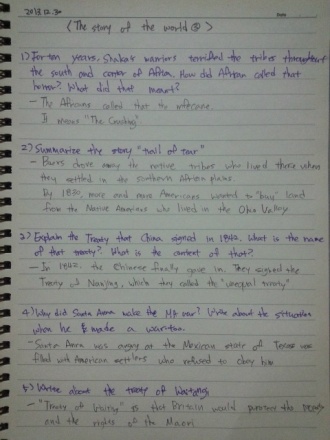 2013.12.30
Date
<The story of the world ④>
1) For ten years, Shaka's warriors terrified the tribes throughout
the south and center of Africa. How did African called that
horror? What did that meant?
- The Africans called that the mfecane.
It means "The Crushing"
2) Summarize the story "trail of tear"
- Boers drove away the native tribes who lived there when
they settled in the southern African plains
By 1830, more and more Americans wanted to "buy" land
from the Native Americans who lived in the Ohio Valley
3) Explain the Treaty that China signed in 1842. What is the name
of that treaty? What is the content of that?
- In 1842, the Chinese finally gave in. They signed the
Treaty of Nanjing, which they called the "unequal treaty"
4) Why did Santa Anna make the war? Write about the situation
when he made a war
- Santa Anna was angry at the Mexican state of Texas was
filled with American settlers who refused to obey him
5) Write about the treaty of Waitangi
- "Treaty of Waitangi" is that Britain would the
and the rights of the Maori